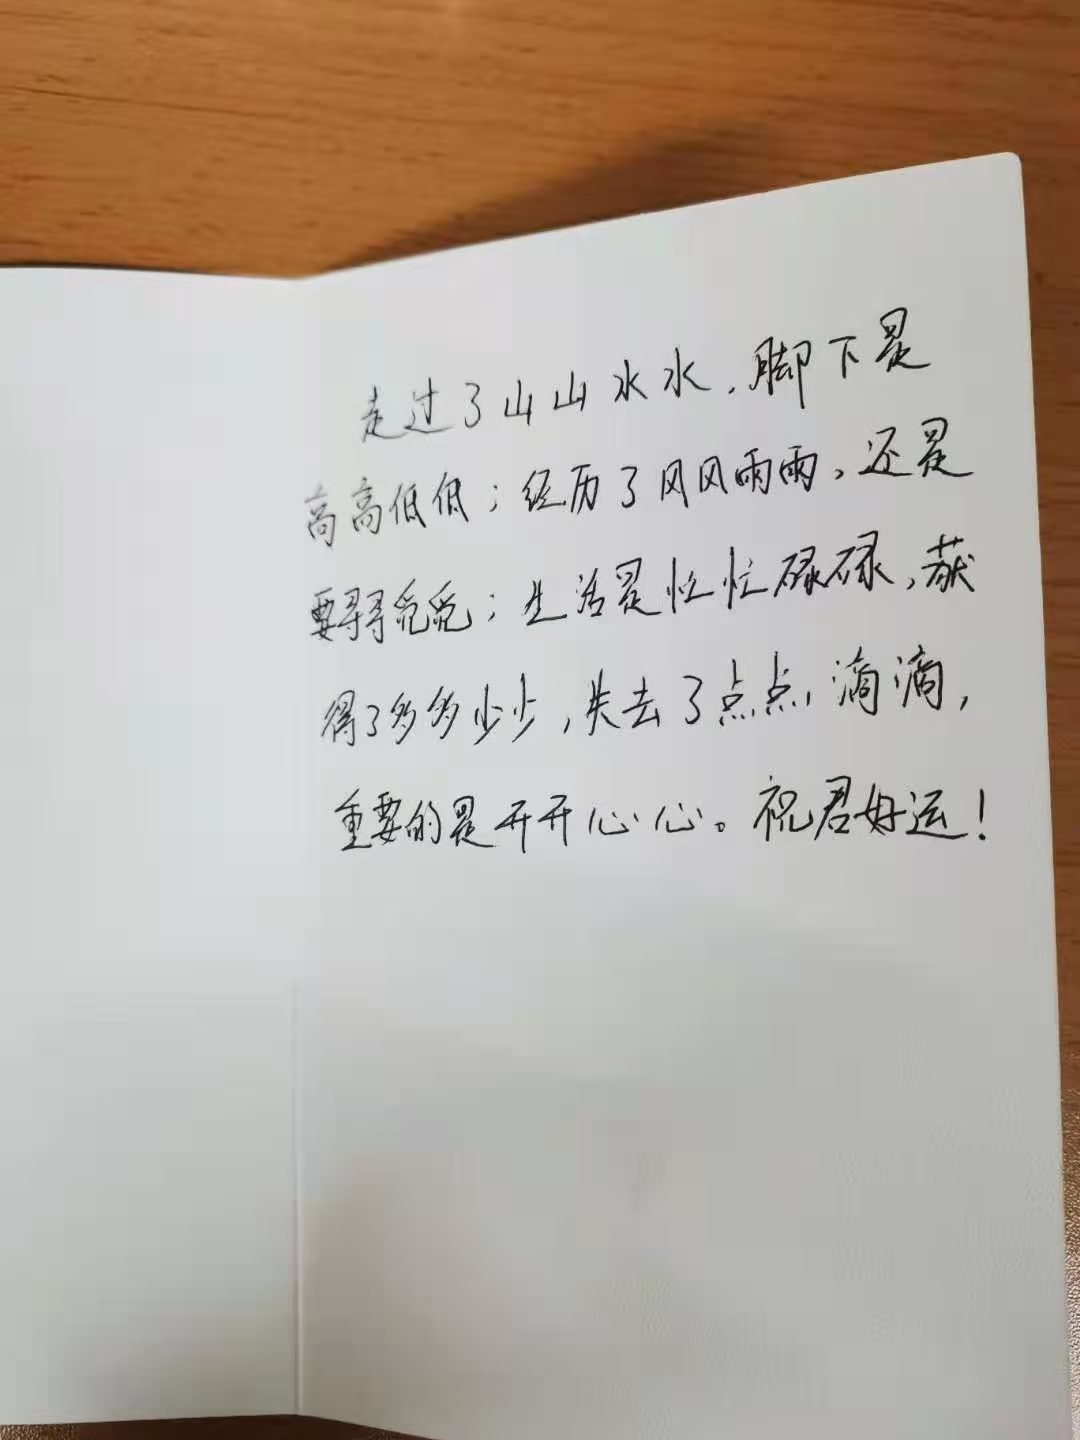 走过了山山水水,脚下是
高高低低;经历了风风雨雨,还是
要寻寻觅觅;生活是忙忙碌碌,获
得了多多少少,失去了点点滴滴,
重要的是开开心心。祝君好运!